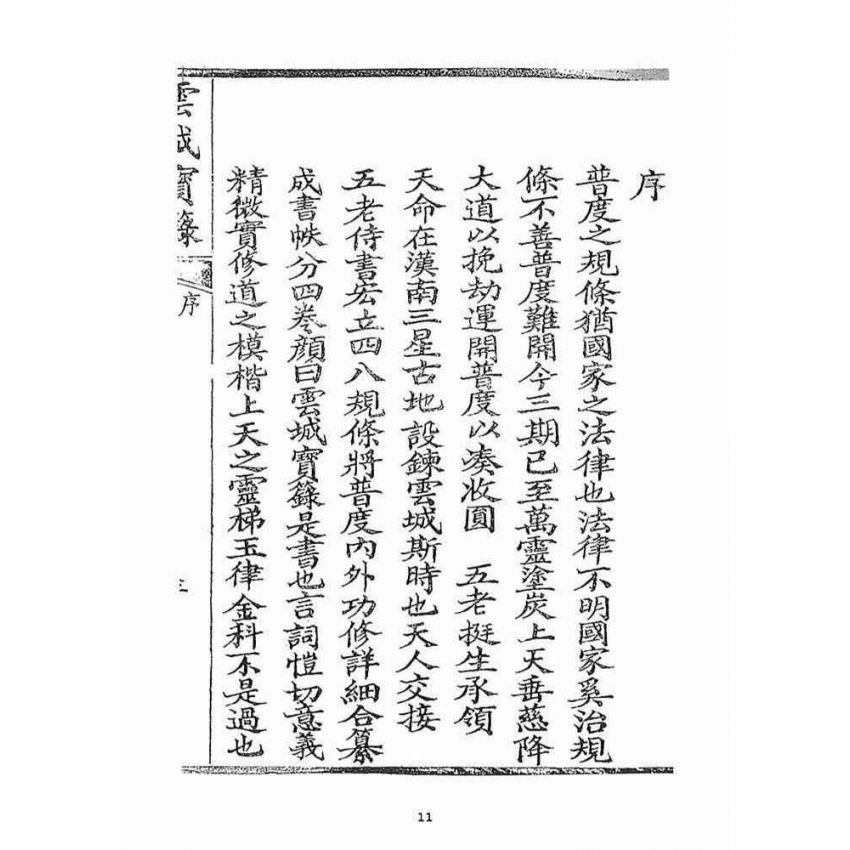 序
普度之規條猶國家之法律也法律不明國家奚治規
條不善普度難開今三期已至萬靈塗炭上天垂慈降
大道以挽劫運開普度以湊收圓　五老挺生承領
天命在漢南三星古地設鍊雲城斯時也天人交接
五老侍書宏立四八規條將普度內外功修詳細合纂
成書帙分四卷顏曰雲城寶籙是書也言詞愷切意義
精微實修道之模楷上天之靈梯玉律金科不是過也
雲城寶籙
序
三
11